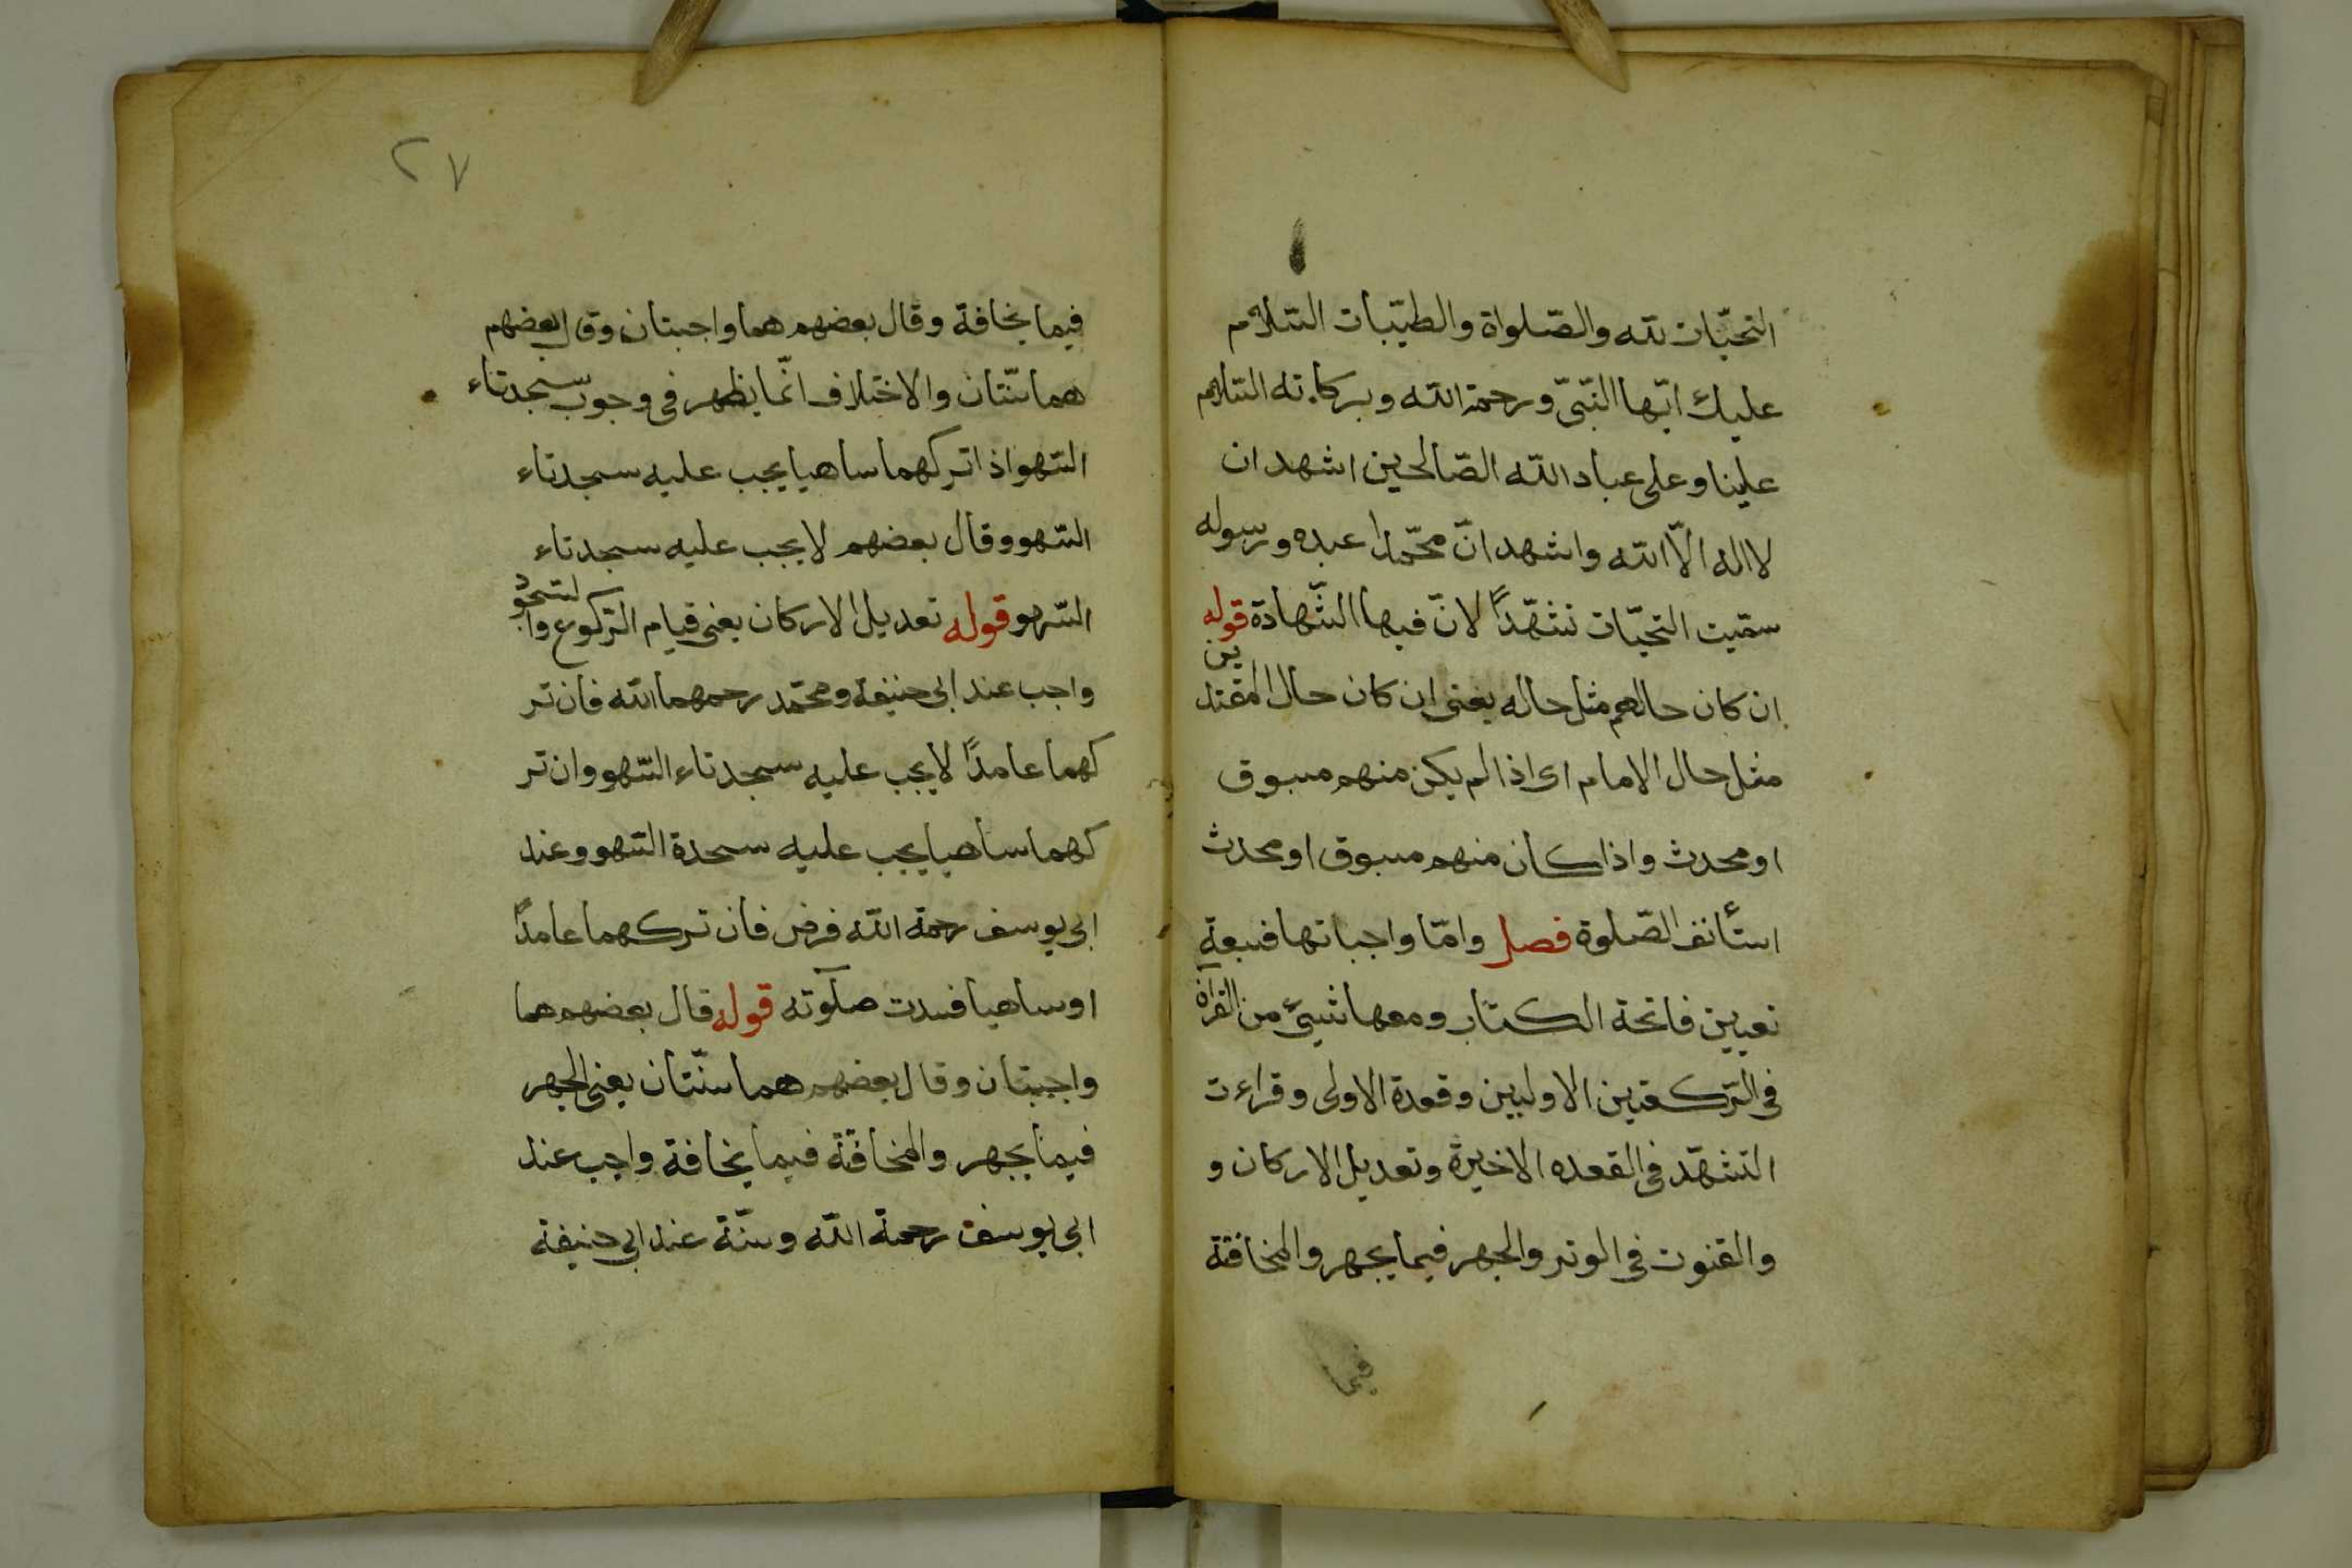 التحيّات لله والصّلواة والطيّبات السّلام
عليك ايّها النّبىّ ورحمة الله وبركاته السّلام
علينا وعلى عباد الله الصّالحين اشهد ان
لا اله الّا الله واشهد انّ محمّدا عبده ورسوله
سمّيت التحيّات تشهّدًا لانّ فيها الشّهادة قوله
ان كان حالهم مثل حاله يعنى ان كان حال المقتدين
مثل حال الامام اى اذا لم يكن منهم مسبوق
او محدث واذا كان منهم مسبوق او محدث
استأنف الصّلوة فصل وامّا واجباتها فسبعة
تعيين فاتحة الكتاب ومعها شيئ من القرآن
فى الرّكعتين الاوليين وقعدة الاولى وقراءت
التشهّد فى القعده الاخيرة وتعديل الاركان و
والقنوت فى الوتر والجهر فيما يجهر والمخافتة
فيما
٢٧
فيما يخافة وقال بعضهم هما واجبتان وقال بعضهم
هما سنّتان والاختلاف انّما يظهر فى وجوب سجدتاء
السّهو اذا تركهما ساهيا يجب عليه سجدتاء
السّهو وقال بعضهم لا يجب عليه سجدتاء
السّهو قوله تعديل الاركان يعنى قيام الرّكوع والسّجود
واجب عند ابى حنيفة ومحمّد رحمهما الله فان تر
كهما عامدًا لا يجب عليه سجدتاء السّهو وان تر
كهما ساهيا يجب عليه سجدة السّهو وعند
ابى يوسف رحمة الله فرض فان تركهما عامدًا
او ساهيا فسدت صلوته قوله قال بعضهم هما
واجبتان وقال بعضهم هما سنّتان يعنى الجهر
فيما يجهر والمخافتة فيما يخافة واجب عند
ابى يوسف رحمة الله وسنّة عند ابى حنيفة